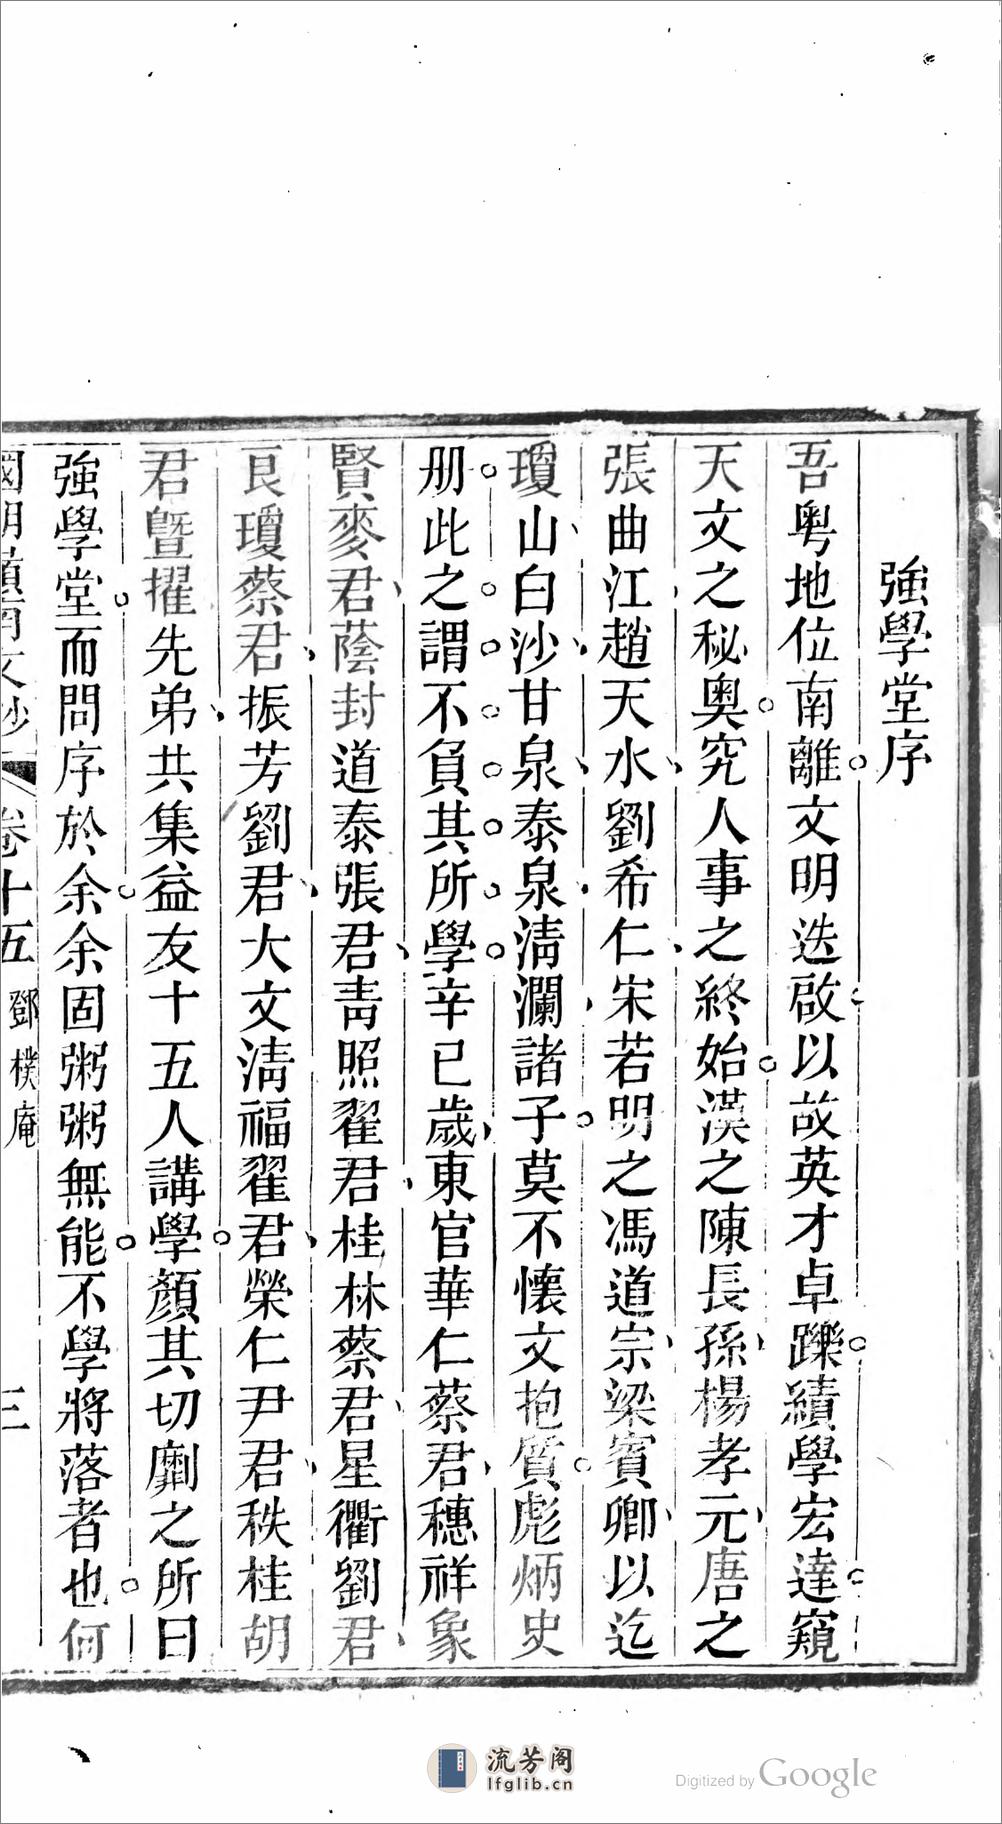 強學堂序
吾粵地位南離文明迭啟以故英才卓躒績學宏達窺
天文之秘奧究人事之終始漢之陳長孫楊孝元唐之
張曲江趙天水劉希仁宋若明之馮道宗梁賓卿以迄
瓊山白沙甘泉泰泉清瀾諸子莫不懷文抱質彪炳史
册此之謂不負其所學辛巳歲東官華仁蔡君穗祥象
賢麥君蔭封道泰張君青照翟君桂林蔡君星衢劉君
良瓊蔡君振芳劉君大文淸福翟君榮仁尹君秩桂胡
君曁擢先弟共集益友十五人講學顏其切劘之所曰
強學堂而問序於余余固粥粥無能不學將落者也何
國朝嶺南文鈔 卷十五 鄧樸庵 三
流芳阁
lfglib.cn
Digitized by Google